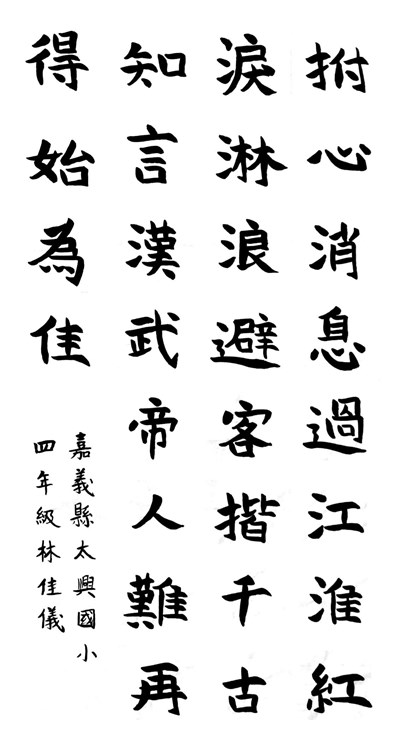 拊心消息過江淮紅
淚淋浪避客揩千古
知言漢武帝人難再
得始為佳
嘉義縣太興國小
四年級林佳儀